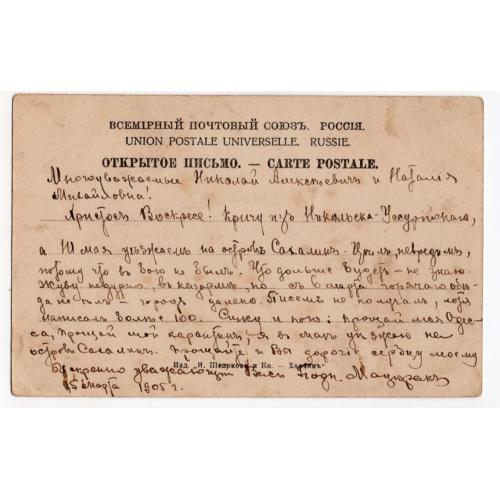 ВСЕМІРНЫЙ ПОЧТОВЫЙ СОЮЗЪ. РОССІЯ.
UNION POSTALE UNIVERSELLE. RUSSIE.
ОТКРЫТОЕ ПИСЬМО. — CARTE POSTALE.
Многоуважаемые Николай Алексѣевичъ и Наталія
Михайловна!
Христосъ Воскресе! Кричу изъ Никольска-Уссурійскаго,
а 10 мая уѣзжаемъ на островъ Сахалинъ. Цѣлъ, невредимъ,
потому что въ бою не былъ. Что дальше будетъ – не знаю.
Живу недурно, въ казармѣ, но съ 6 марта горячаго обѣ-
да не – городъ далеко. Писемъ не получалъ, хотя
написалъ больше 100. Сижу и пою: прощай моя Одес-
са, прощай мой карантинъ, я въ маѣ уѣзжаю на
островъ Сахалинъ. Прощайте и Вы дорогіе сердцу моему
Изд. „И. Шелкова и Ко. — Харбинъ"
Искренно уважающій Васъ
15 марта 1905 г.